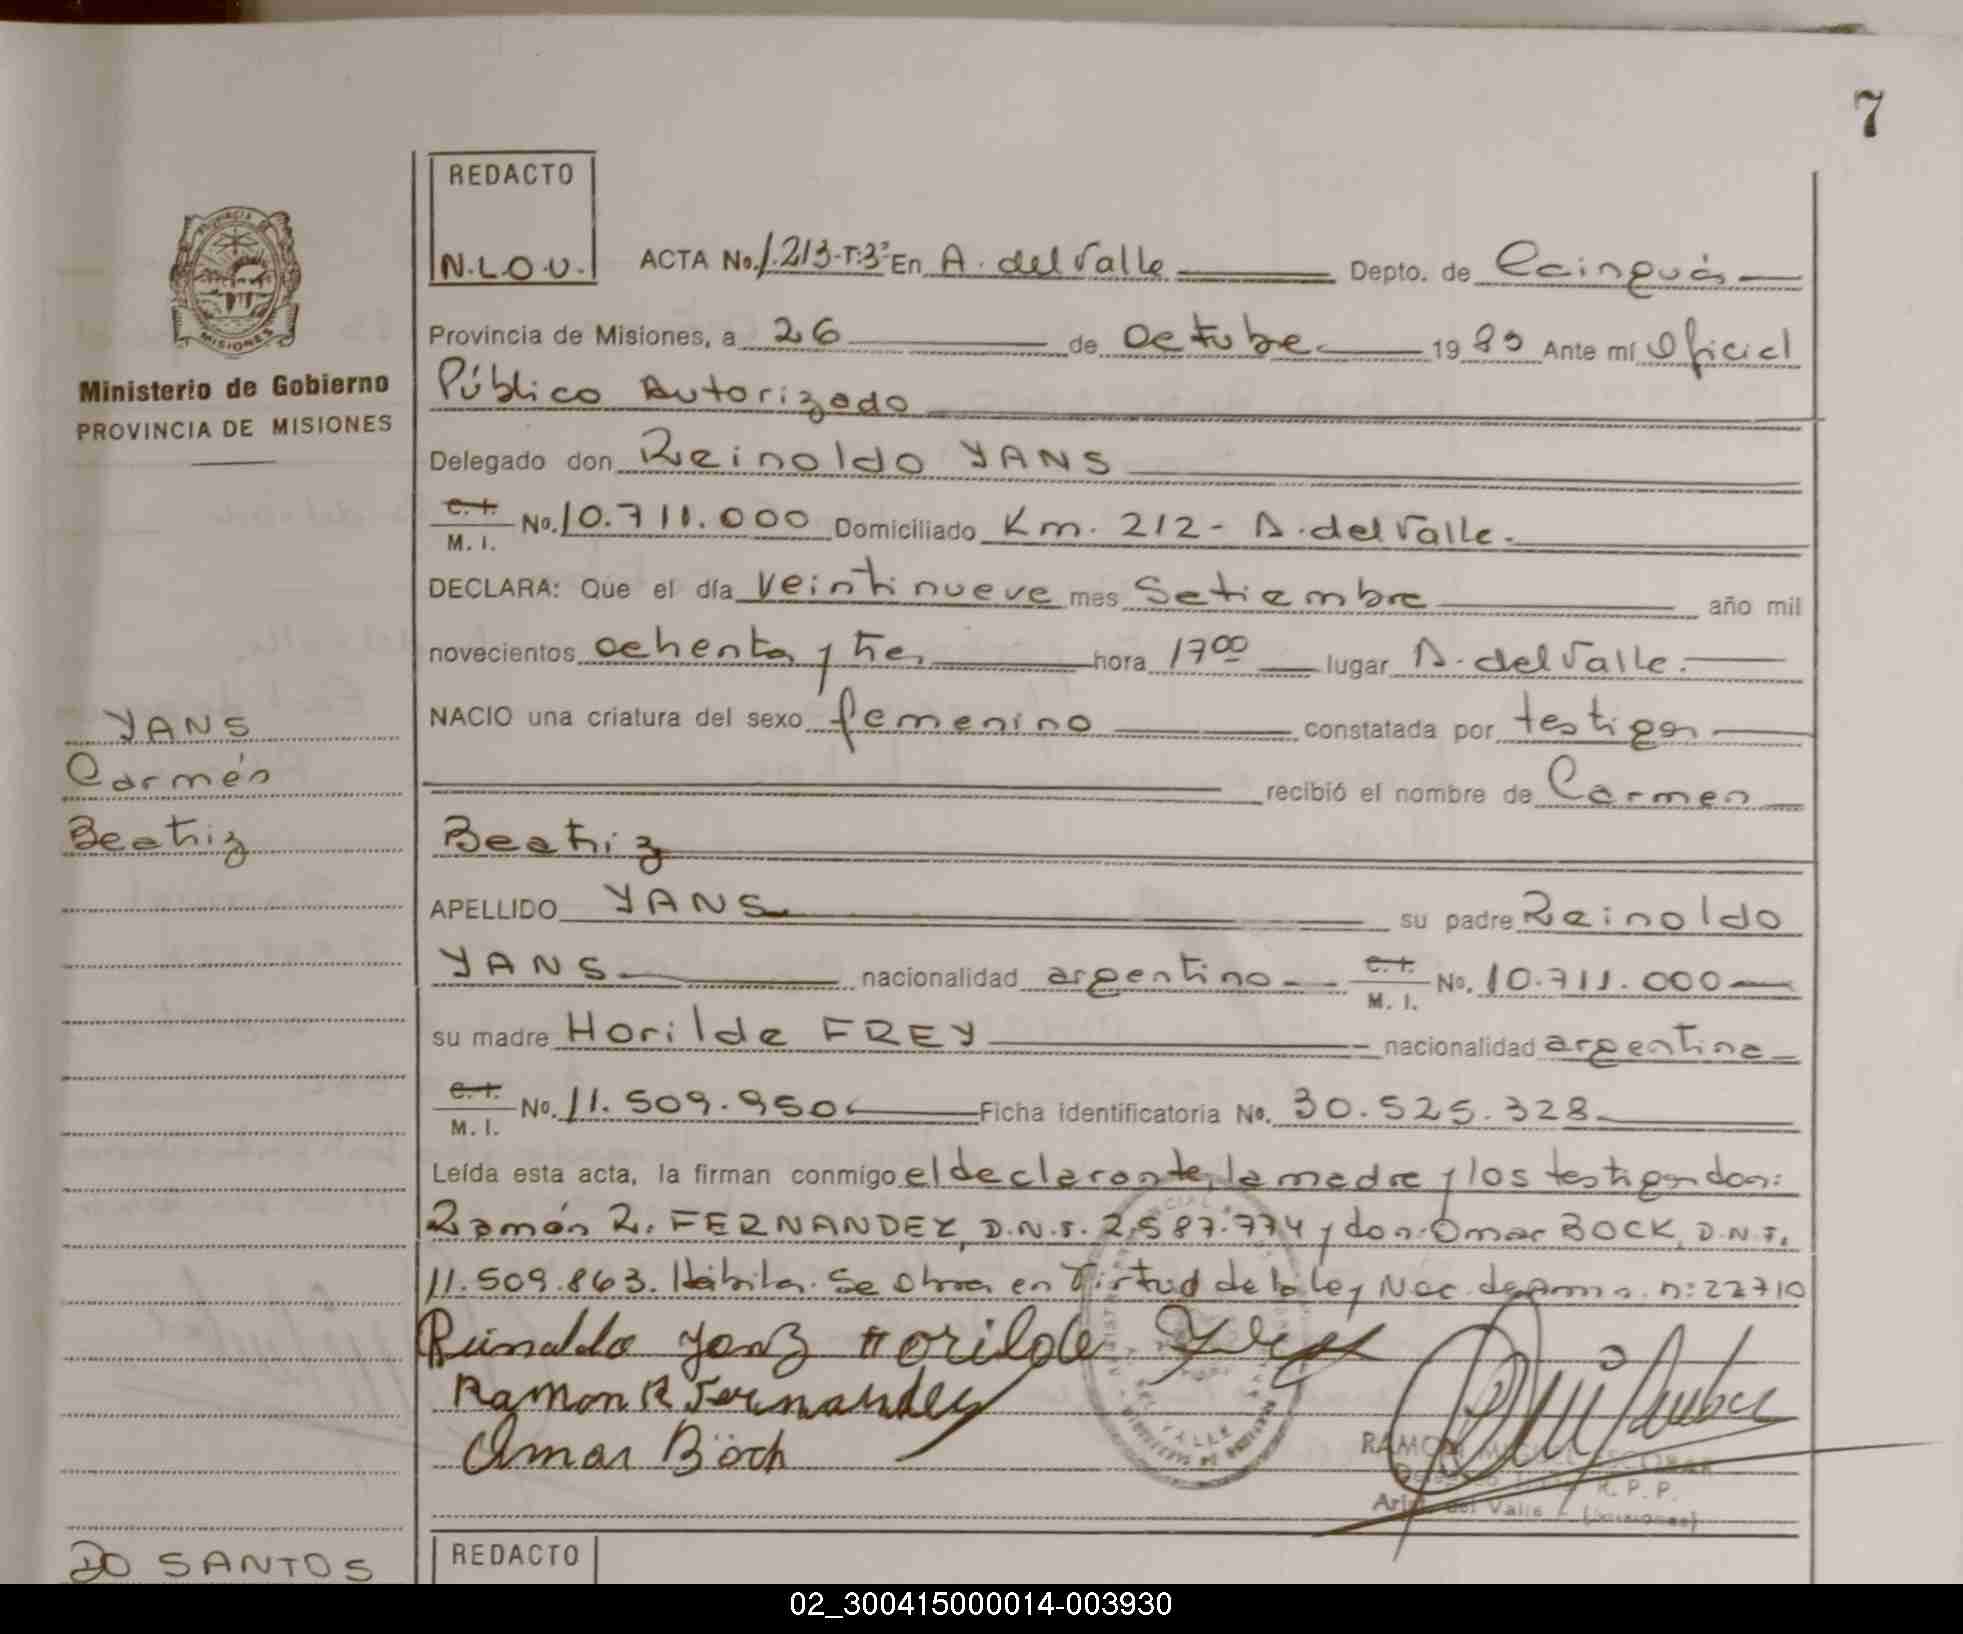 7
REDACTO
N.L.O.U.
ACTA No. 1.213-T:3º En A. del Valle Depto. de Cainguás
Provincia de Misiones, a 26 de Octubre 1983 Ante mí Oficial
Público Autorizado
Ministerio de Gobierno
PROVINCIA DE MISIONES
Delegado don Reinoldo YANS
C.I. M. I. No. 10.711.000 Domiciliado Km. 212 - A. del Valle.
DECLARA: Que el día veintinueve mes Setiembre año mil
novecientos ochenta y tres hora 17 00 lugar A. del Valle.
NACIO una criatura del sexo femenino constatada por testigos
recibió el nombre de Carmen
Beatriz
YANS
Carmén
Beatriz
APELLIDO YANS su padre Reinoldo
YANS nacionalidad argentino C.I. M. I. No. 10.711.000
su madre Horilde FREY nacionalidad argentina
C.I. M. I. No. 11.509.950 Ficha identificatoria No. 30.525.328
Leída esta acta, la firman conmigo el declarante, la madre y los testigos don:
Ramón R. FERNANDEZ, D.N.I. 2.587.774 y don Omar BOCK, D.N.I.
11.509.863. Hábiles. Se obra en Virtud de la Ley Nac. de Amn. n: 22710
Reinaldo Yanz Horilde Frey
Ramon R Fernandez
Omar Böck
RAMON MIGUEL ESCOBAR
R. P. P.
Arist. del Valle (Misiones)
DO SANTOS
REDACTO
02_300415000014-003930